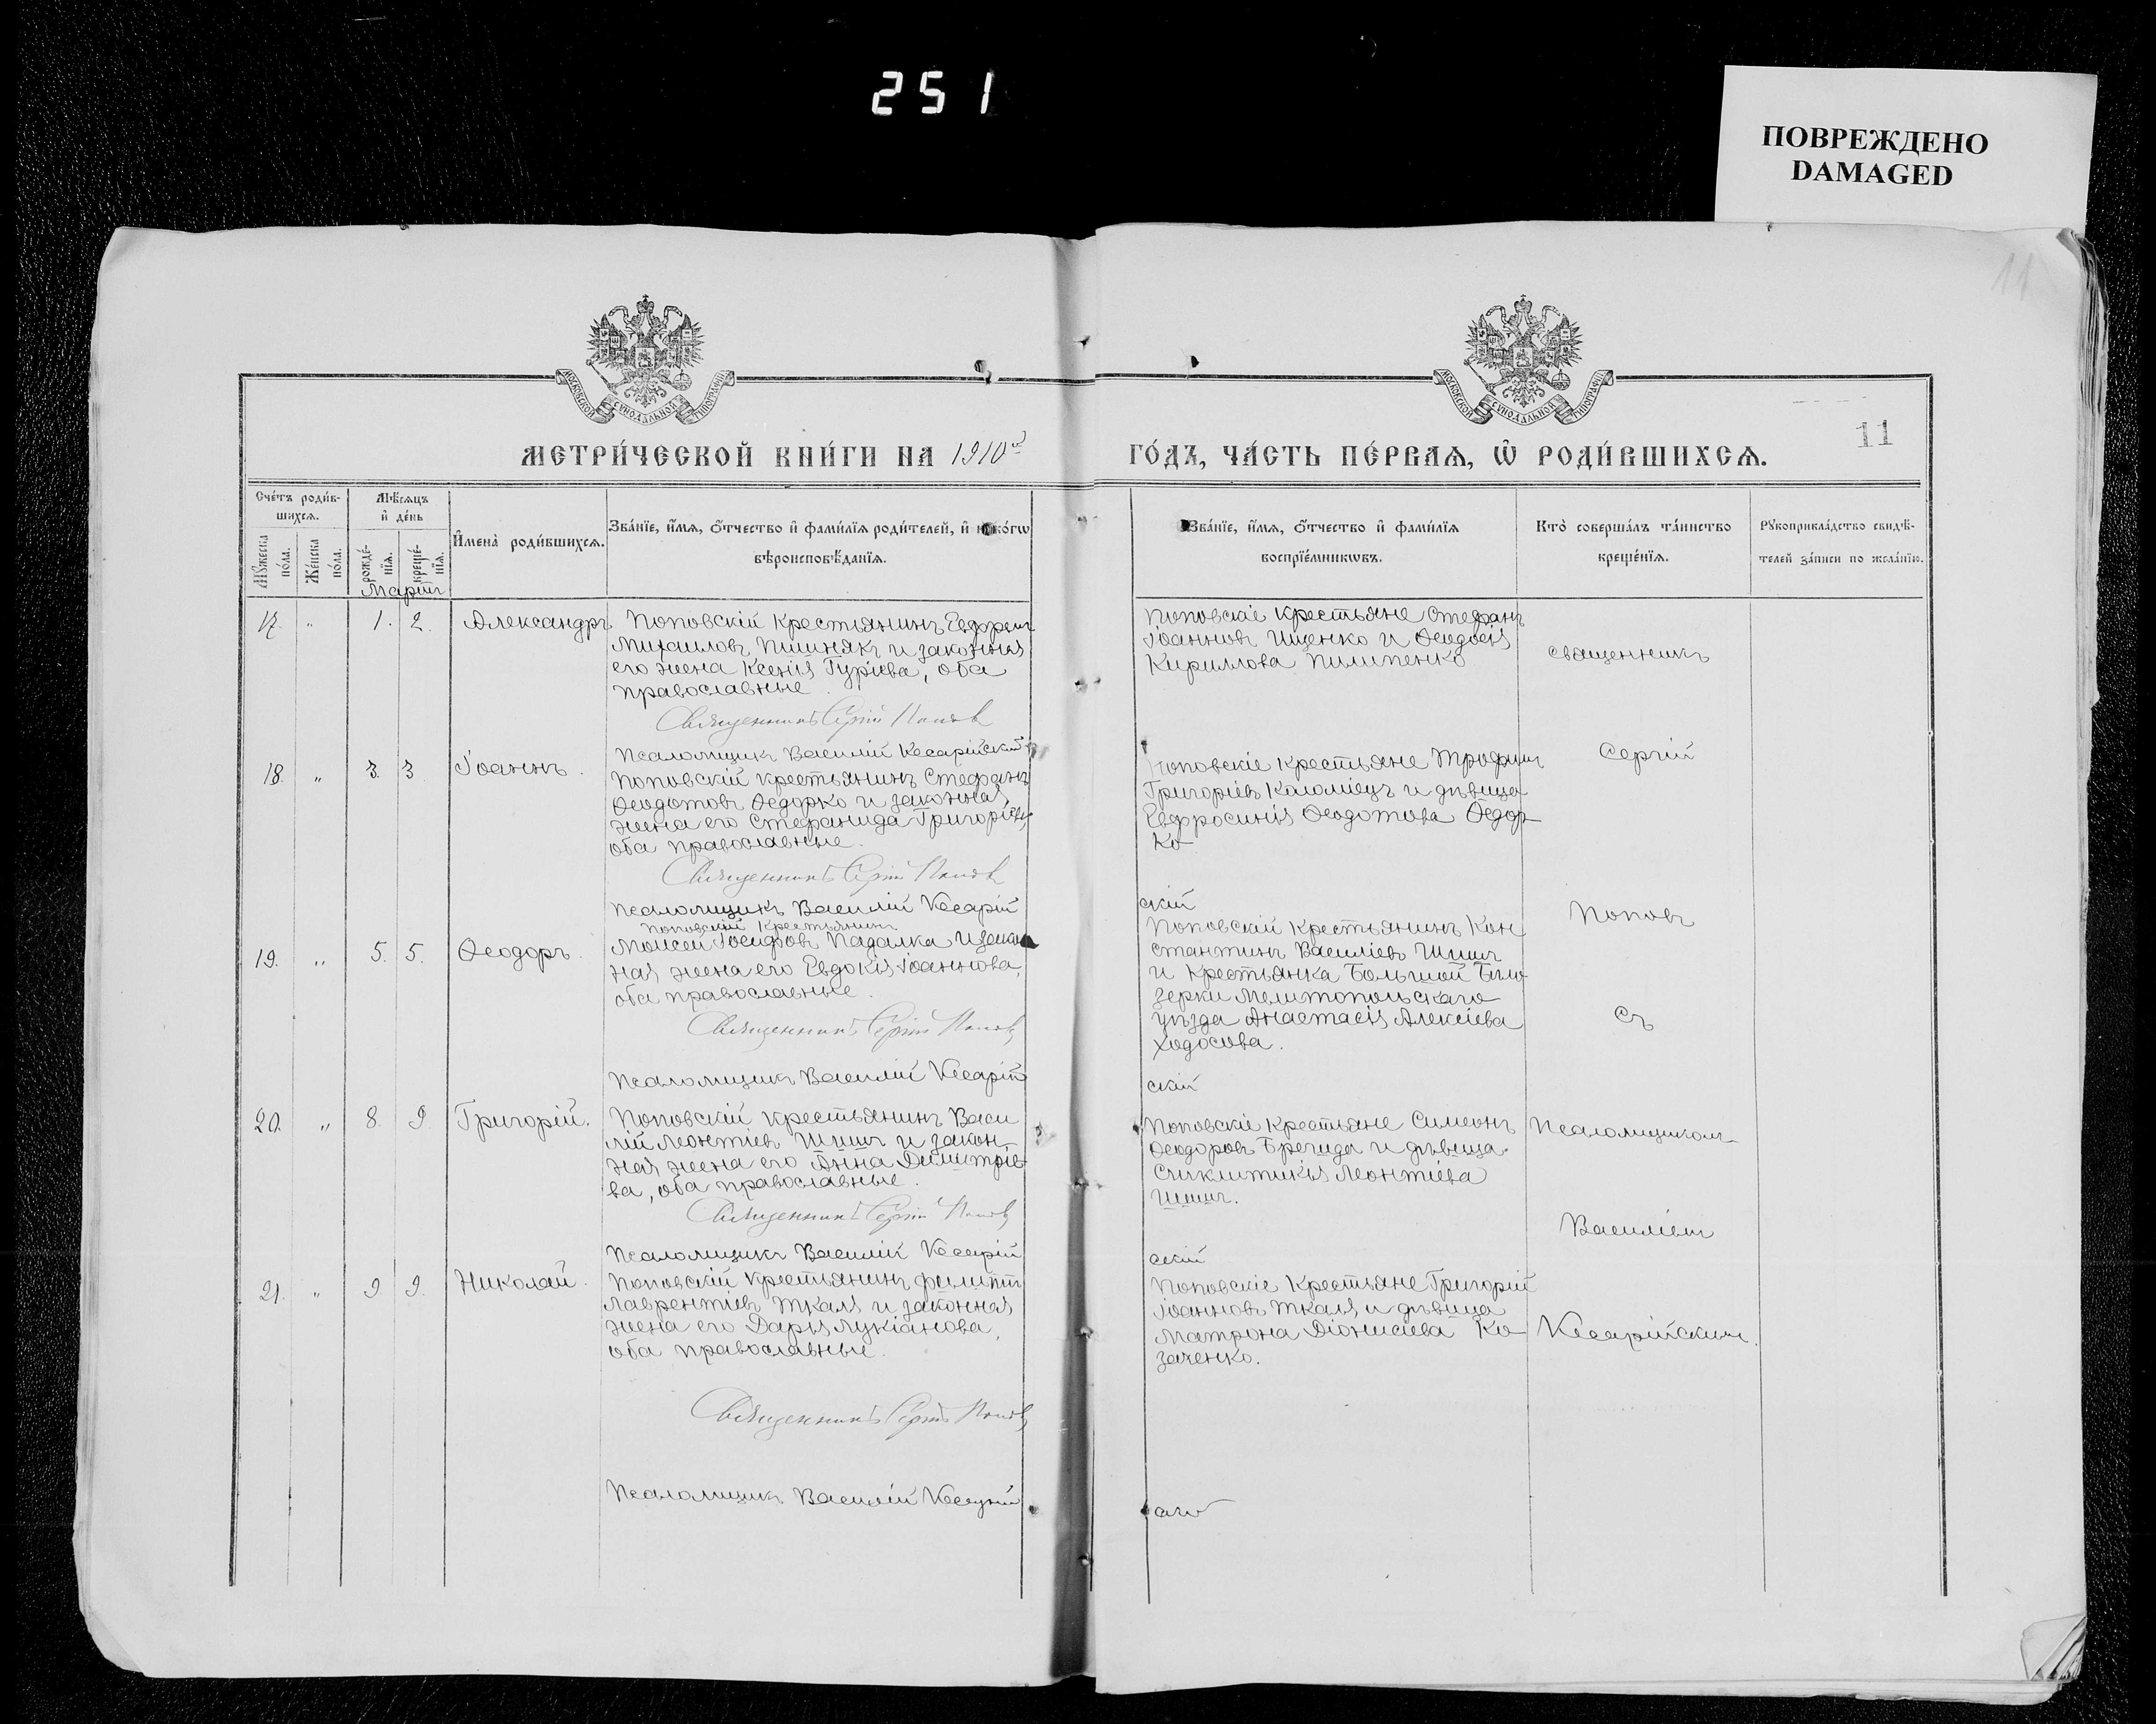 251
ПОВРЕЖДЕНО
DAMAGED
11
МОСКОВСКОЙ СѴНОДАЛЬНОЙ ТИПОГРАФІИ
МОСКОВСКОЙ СѴНОДАЛЬНОЙ ТИПОГРАФІИ
МЕТРИ́ЧЕСКОЙ КНИ́ГИ НА 1910й ГО́ДЪ, ЧА́СТЬ ПЕ́РВАѦ, Ѿ РОДИ́ВШИХСѦ.
11
Сче́тъ роди́в-
шихсѧ.
Мꙋ́жеска по́ла.
Же́нска по́ла.
Мѣ́сѧцъ
и҆ де́нь
рожде́-
нїѧ.
креще́-
нїѧ.
И҆мена̀ роди́вшихсѧ.
Зва́нїе, и҆́мѧ, ѻ҆́тчество и҆ фами́лїѧ роди́телей, и҆ како́гѡ
вѣроисповѣ́данїѧ.
Зва́нїе, и҆́мѧ, ѻ҆́тчество и҆ фами́лїѧ
воспрїе́мникѡвъ.
Кто̀ соверша́лъ та́инство
креще́нїѧ.
Рꙋкоприкла́дство свидѣ́-
телей за́писи по жела́нїю.
Мартъ
17. " 1. 2. Александръ.
Поповскій крестьянинъ Евфрем
Михаиловъ Пшинякъ и законная
его жена Ксенія Гурьева, оба
православные.
Священникъ Сергій Поповъ
Псаломщикъ Василій Кесарійскій
Поповскіе крестьяне Стефанъ
Іоанновъ Ищенко и Ѳеодосія
Кириллова Пилипенко
священникъ
18. " 3. 3 Іоаннъ.
Поповскій крестьянинъ Стефанъ
Ѳеодотовъ Ѳедорко и законная
жена его Стефанида Григоріева,
оба православные.
Священникъ Сергій Поповъ
Псаломщикъ Василій Кесарій
скій
Поповскіе крестьяне Трофим
Григоріевъ Коломіецъ и дѣвица
Евфросинія Ѳеодотова Ѳедор-
ко
Сергій
19. " 5. 5. Ѳеодоръ.
Поповскій крестьянинъ
Моисей Іосифовъ Падалка и закон
ная жена его Евдокія Іоаннова,
оба православные.
Священникъ Сергій Поповъ
Псаломщикъ Василій Кесарій
скій
Поповскій крестьянинъ Кон
стантинъ Василіевъ Шишъ
и крестьянка Большой Бѣло
зерки Мелитопольскаго
уѣзда Анастасія Алексіева
Ходосова.
Поповъ
съ
20. " 8. 9 Григорій.
Поповскій крестьянинъ Васи
лій Леонтіевъ Шишъ и закон-
ная жена его Анна Димитріе
ва, оба православные.
Священникъ Сергій Поповъ
Псаломщикъ Василій Кесарій
скій
Поповскіе крестьяне Симеонъ
Ѳеодоровъ и дѣвица
Синклитикія Леонтіева
Шишъ.
псаломщикомъ
Василіем
21. " 9. 9. Николай.
Поповскій крестьянинъ Филиппъ
Лаврентіевъ Ткаля и законная
жена его Дарья Лукіанова,
оба православные.
Священникъ Сергій Поповъ
Псаломщикъ Василій
Поповскіе крестьяне Григорій
Іоанновъ Ткаля и дѣвица
Матрона Діонисіева Ко-
заченко.
Кесарійскимъ.